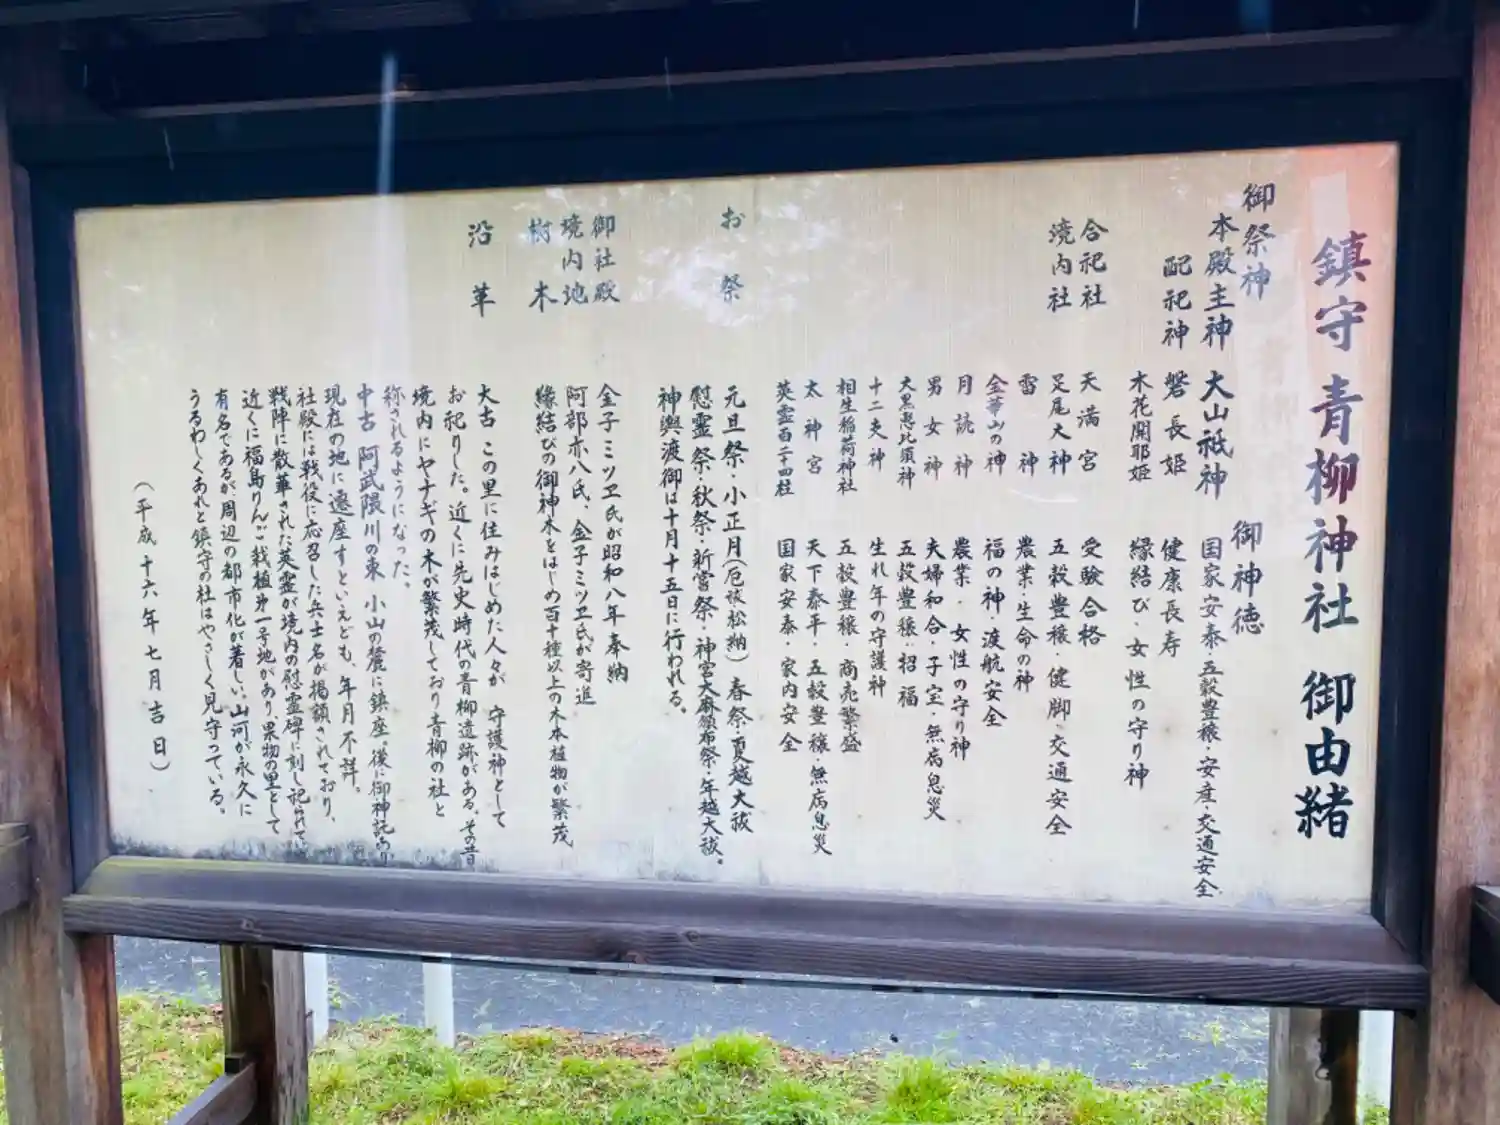 鎮守 青柳神社 御由緒
御祭神
御神徳
本殿主神 大山祗神 国家安泰・五穀豊穣・安産・交通安全
配祀神 磐長姫 健康長寿
木花開耶姫 縁結び・女性の守り神
合祀社 天満宮 受験合格
境内社 足尾大神 五穀豊穣・健脚・交通安全
雷神 農業・生命の神
金華山の神 福の神・渡航安全
月読神 農業・女性の守り神
男女神 夫婦和合・子宝・無病息災
大黒恵比須神 五穀豊穣・招福
十二支神 生れ年の守護神
相生稲荷神社 五穀豊穣・商売繁盛
太神宮 天下泰平・五穀豊穣・無病息災
英霊百二十四柱 国家安泰・家内安全
お祭 元旦祭・小正月(厄祓松納)春祭・夏越大祓
慰霊祭・秋祭・新嘗祭・神宮大麻頒布祭・年越大祓。
神輿渡御は十月十五日に行われる。
御社殿 金子ミツヱ氏が昭和八年奉納
境内地 阿部亦八氏、金子ミツヱ氏が寄進
樹木 縁結びの御神木をはじめ百十種以上の木本植物が繁茂
沿革 大古 この里に住みはじめた人々が 守護神として
お祀りした。近くに先史時代の青柳遺跡がある。その昔
境内にヤナギの木が繁茂しており青柳の社と
称されるようになった。
中古 阿武隈川の東 小山の麓に鎮座。後に御神託あり
現在の地に遷座すといえども、年月不詳。
社殿には戦役に応召した兵士名が掲額されており、
戦陣に散華された英霊が境内の慰霊碑に刻し祀られている
近くに福島りんご栽植第一号地があり果物の里として
有名であるが周辺の都市化が著しい。山河が永久に
うるわしくあれと鎮守の社はやさしく見守っている。
(平成十六年七月吉日)